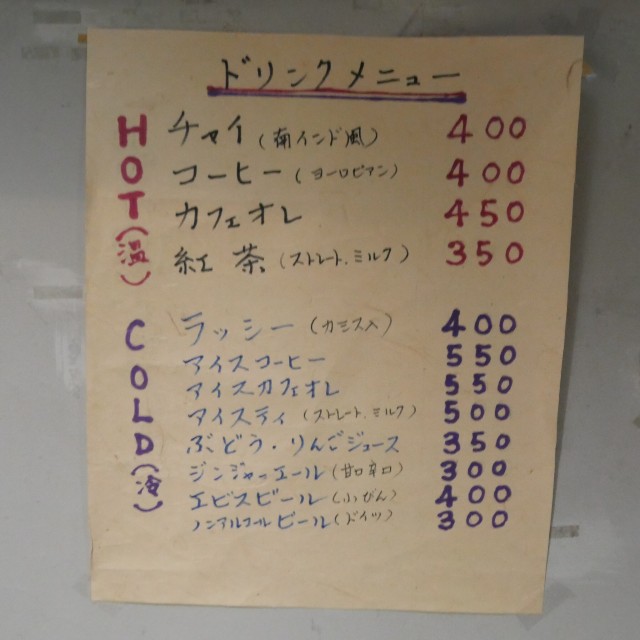 ドリンクメニュー
HOT(温)
チャイ(南インド風) 400
コーヒー(ヨーロピアン) 400
カフェオレ 450
紅茶(ストレート、ミルク) 350
COLD(冷)
ラッシー(カミス入) 400
アイスコーヒー 550
アイスカフェオレ 550
アイスティ(ストレート、ミルク) 500
ぶどう・りんごジュース 350
ジンジャーエール(甘口辛口) 300
エビスビール(小びん) 400
ノンアルコールビール(ドイツ) 300